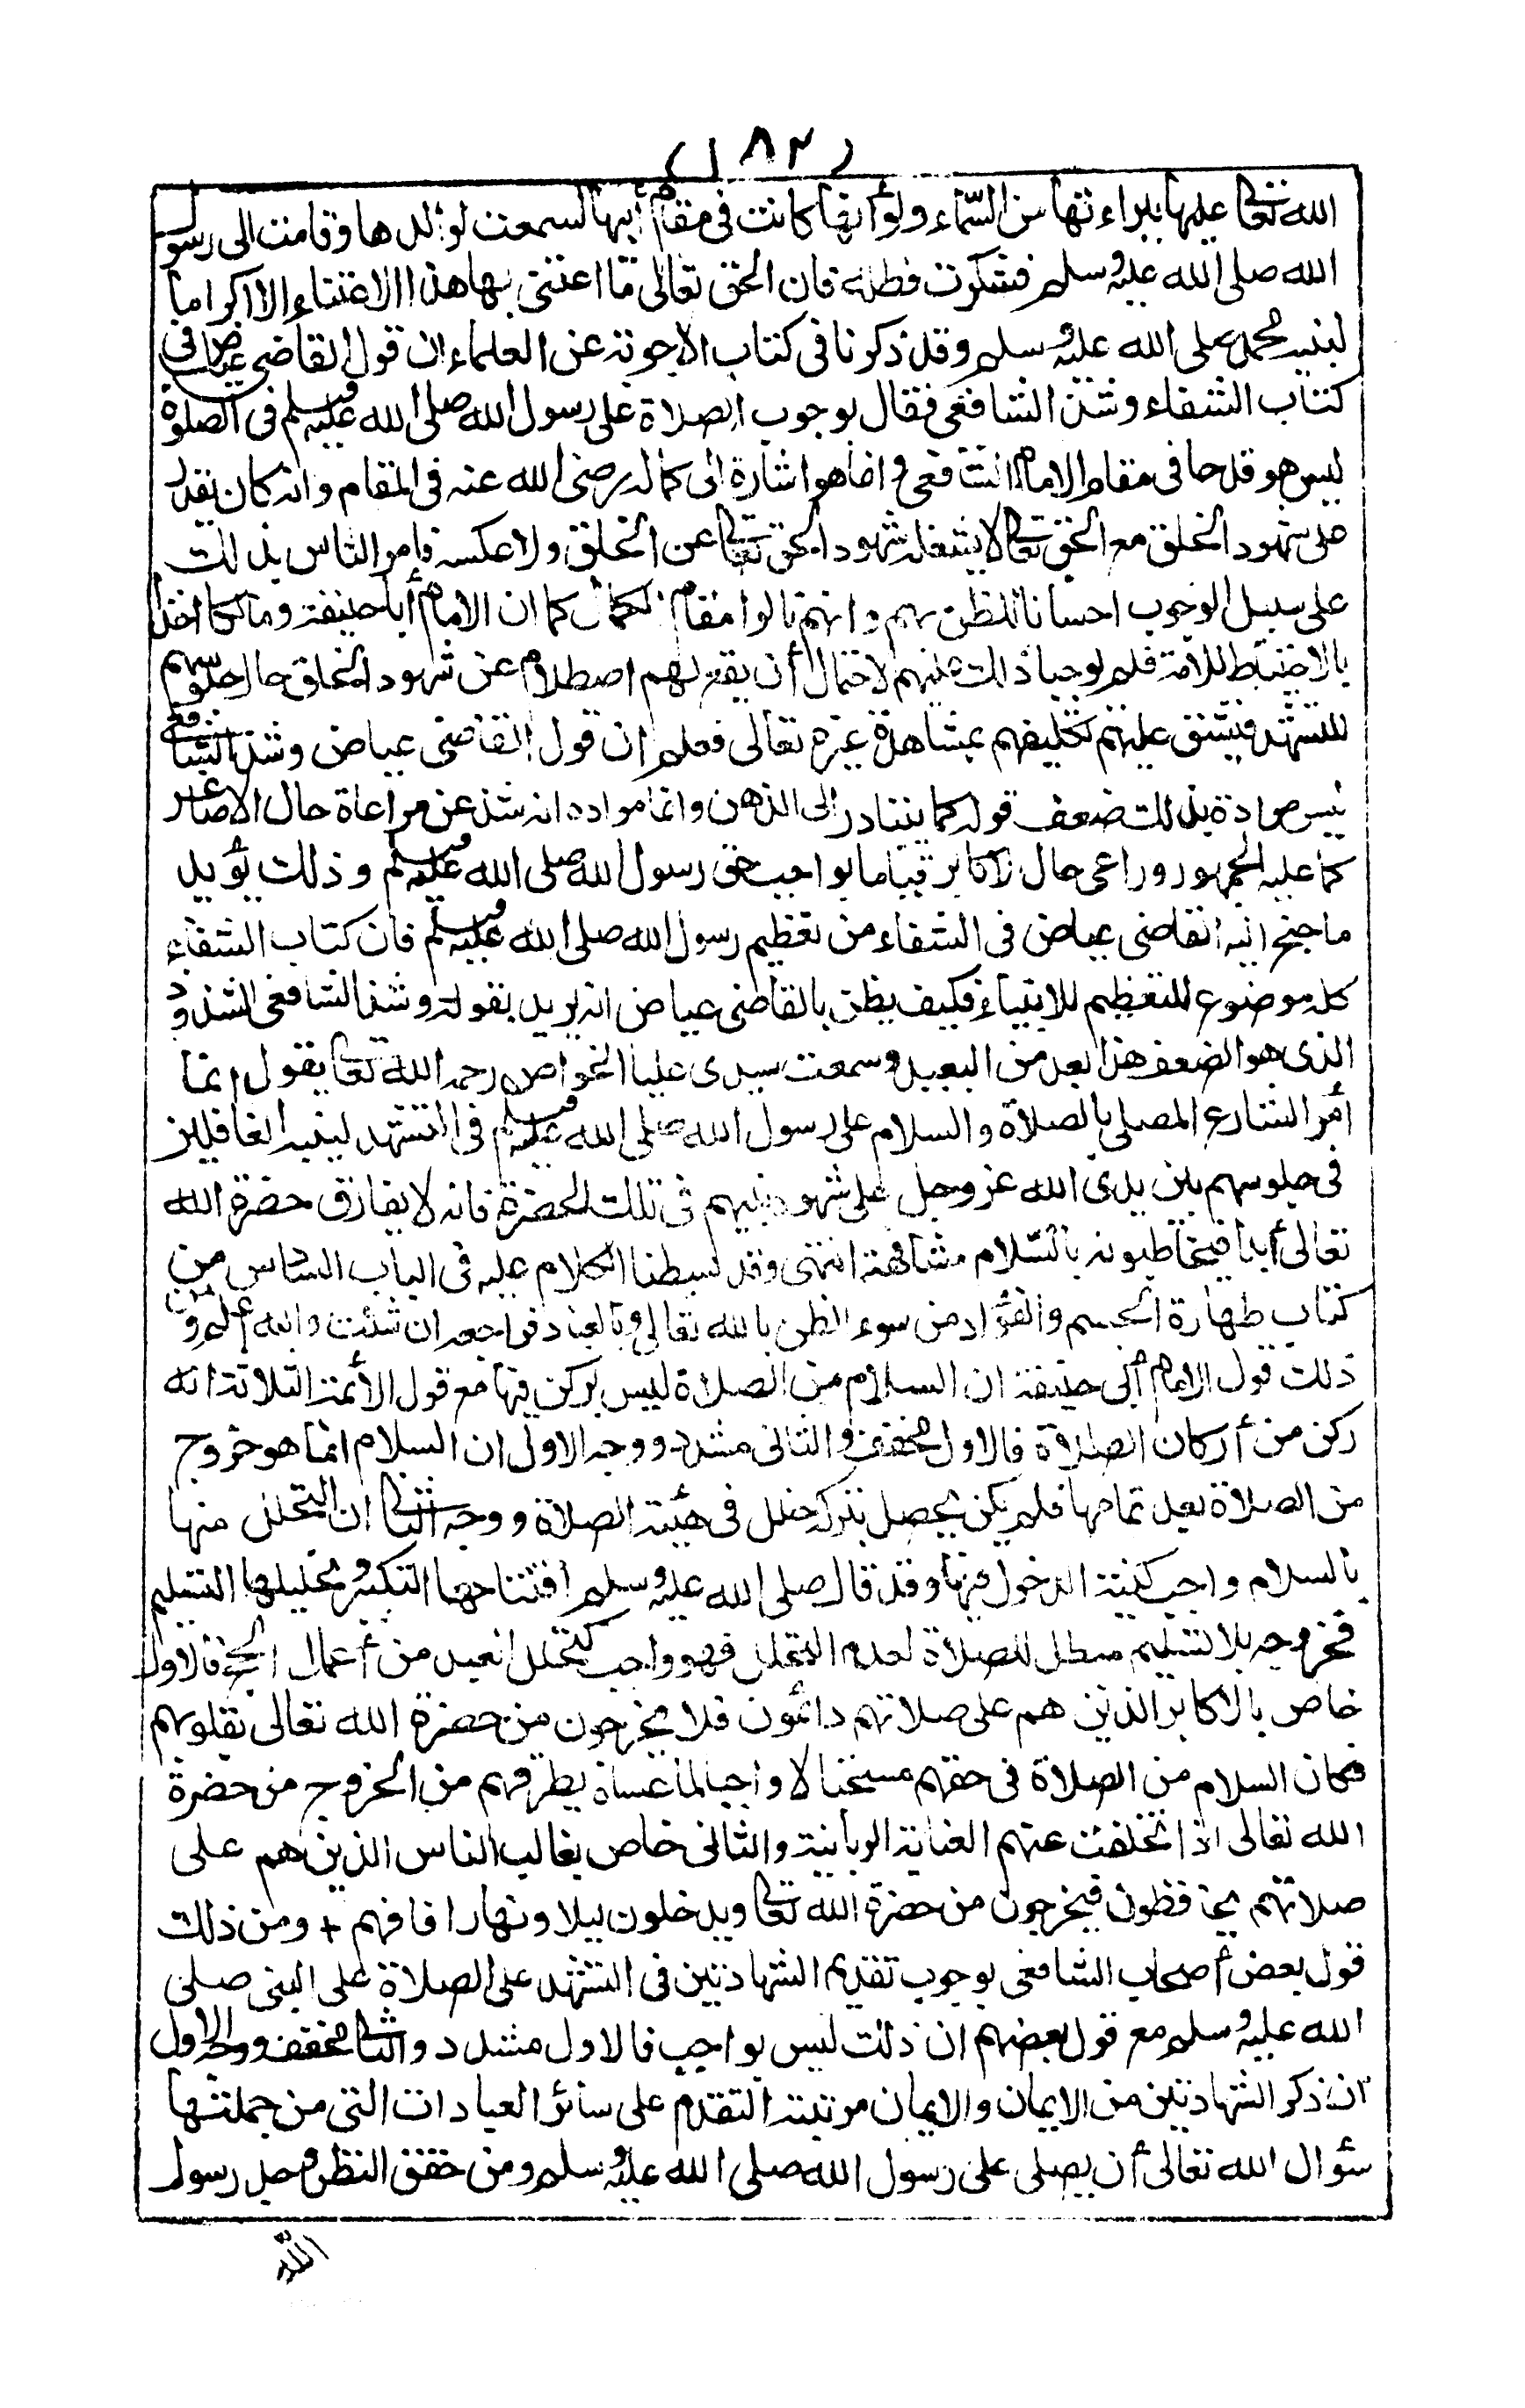 (١٨٢)
الله تعالى عليها ببراءتها من السماء ولو أنها كانت فى مقام أبيها لسمعت لوالدها وقامت الى رسول
الله صلى الله عليه وسلم فشكرت فضله فان الحق تعالى ما اعتنى بها هذا الاعتناء الا اكراما
لنبيه محمد صلى الله عليه وسلم وقد ذكرنا فى كتاب الاجوبة عن العلماء ان قول القاضى عياض فى
كتاب الشفاء وشذ الشافعى فقال بوجوب الصلاة على رسول الله صلى الله عليه وسلم فى الصلوة
ليس هو قدحا فى مقام الامام الشافعى وانما هو اشارة الى كماله رضى الله عنه فى المقام وانه كان يقدر
على شهود الخلق مع الحق تعالى لا يشغله شهود الحق تعالى عن الخلق ولا عكسه فامر الناس بذلك
على سبيل الوجوب احسانا للظن بهم وانهم نالوا مقام الكمال كما ان الامام أبا حنيفة ومالكا اخذا
بالاحتياط للامة فلم يوجبا ذلك عليهم لاحتمال أن يقع لهم اصطلام عن شهود الخلق حال جلوسهم
للتشهد فيشق عليهم تكليفهم بمشاهدة غيره تعالى فعلم ان قول القاضى عياض وشذ الشافعى
ليس مراده بذلك ضعف قوله كما يتبادر الى الذهن وانما مراده انه شذ عن مراعاة حال الاصاغر
كما عليه الجمهور وراعى حال الاكابر قياما بواجب حق رسول الله صلى الله عليه وسلم وذلك يؤيد
ما جنح اليه القاضى عياض فى الشفاء من تعظيم رسول الله صلى الله عليه وسلم فان كتاب الشفاء
كله موضوع للتعظيم للانبياء فكيف يظن بالقاضى عياض انه يريد بقوله وشذ الشافعى الشذوذ
الذى هو الضعف هذا بعد من البعيد وسمعت سيدى عليا الخواص رحمه الله تعالى يقول انما
أمر الشارع المصلى بالصلاة والسلام على رسول الله صلى الله عليه وسلم فى التشهد لينبه الغافلين
فى جلوسهم بين يدى الله عز وجل على شهود نبيهم فى تلك الحضرة فانه لا يفارق حضرة الله
تعالى أبدا فيخاطبونه بالسلام مشافهة انتهى وقد بسطنا الكلام عليه فى الباب السادس من
كتاب طهارة الجسم والفؤاد من سوء الظن بالله تعالى وبالعباد فراجعه ان شئت والله أعلم ومن
ذلك قول الامام أبى حنيفة ان السلام من الصلاة ليس بركن فيها مع قول الأئمة الثلاثة انه
ركن من أركان الصلاة فالاول مخفف والثانى مشدد ووجه الاول ان السلام انما هو خروج
من الصلاة بعد تمامها فلم يكن يحصل بتركه خلل فى هيئة الصلاة ووجه الثانى ان التحلل منها
بالسلام واجب كنية الدخول فيها وقد قال صلى الله عليه وسلم افتتاحها التكبير وتحليلها التسليم
فخروجه بلا تسليم مبطل للصلاة لعدم التحلل فهو واجب كتحلل العبد من أعمال الحج فالاول
خاص بالاكابر الذين هم على صلاتهم دائمون فلا يخرجون من حضرة الله تعالى بقلوبهم
فكان السلام من الصلاة فى حقهم مستحبا لا واجبا لما عساه يطرقهم من الخروج من حضرة
الله تعالى اذا تخلفت عنهم العناية الربانية والثانى خاص بغالب الناس الذين هم على
صلاتهم يحافظون فيخرجون من حضرة الله تعالى ويدخلون ليلا ونهارا فافهم + ومن ذلك
قول بعض أصحاب الشافعى بوجوب تقديم الشهادتين فى التشهد على الصلاة على النبى صلى
الله عليه وسلم مع قول بعضهم ان ذلك ليس بواجب فالاول مشدد والثانى مخفف ووجه الاول
ان ذكر الشهادتين من الايمان والايمان مرتبته التقدم على سائر العبادات التى من جملتها
سؤال الله تعالى أن يصلى على رسول الله صلى الله عليه وسلم ومن حقق النظر وجد رسول
الله